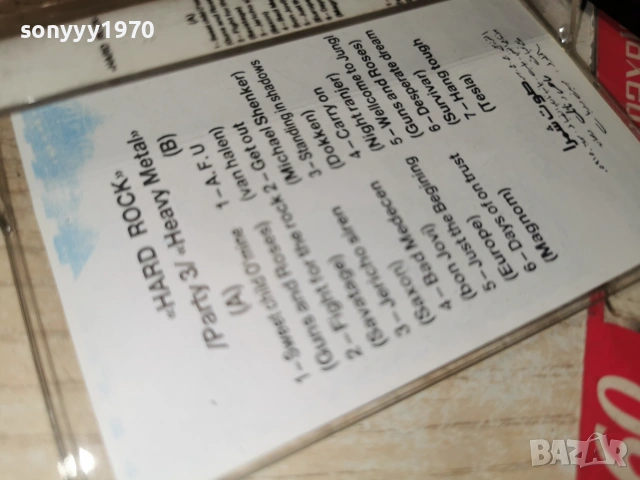 sonyyy1970
«HARD ROCK»
/Party 3/ «Heavy Metal»
(A)
1- Sweet child O'mine
(Guns and Roses)
2- Fight for the rock
(Savatage)
3- Jericho siren
(Saxon)
4- Bad Medecen
(bon Jovi)
5- Just the Begining
(Europe)
6- Days of on trust
(Magnom)
(B)
1- A.F.U
(van halen)
2- Get out
(Michael Shenker)
3- Standing in shadows
(Dokken)
4- Carry on
(Night ranjer)
5- Wellcome to Jungl
(Guns and Roses)
6- Desperate dream
(Survivar)
7- Hang tough
(Tesla)
BAZAR
.bg